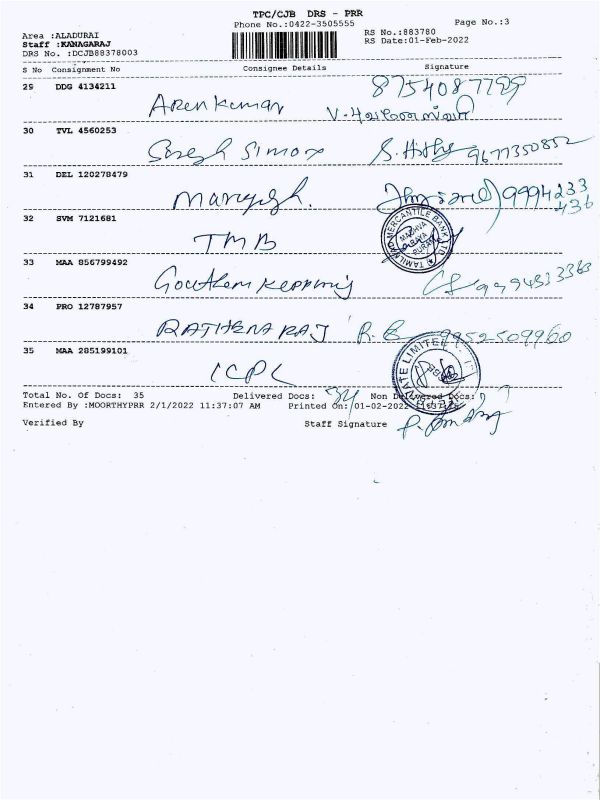 TPC/CJB DRS - PRR
Phone No.:0422-3505555
Page No.:3
Area :ALADURAI
Staff :KANAGARAJ
DRS No. :DCJB88378003
RS No.:883780
RS Date:01-Feb-2022
S No Consignment No Consignee Details Signature
29 DDG 4134211 8754087799
Arenkumar
30 TVL 4560253
Suresh Simon 9677350852
31 DEL 120278479
9994233
436
32 SVM 7121681
TMB
TAMILNAD MERCANTILE BANK LTD
33 MAA 856799492
34 PRO 12787957
RATHENA RAJ 9952509960
35 MAA 285199101
ICPL
Total No. Of Docs: 35 Delivered Docs: 34 Non Delivered Docs:
Entered By :MOORTHYPRR 2/1/2022 11:37:07 AM Printed On: 01-02-2022
Verified By Staff Signature